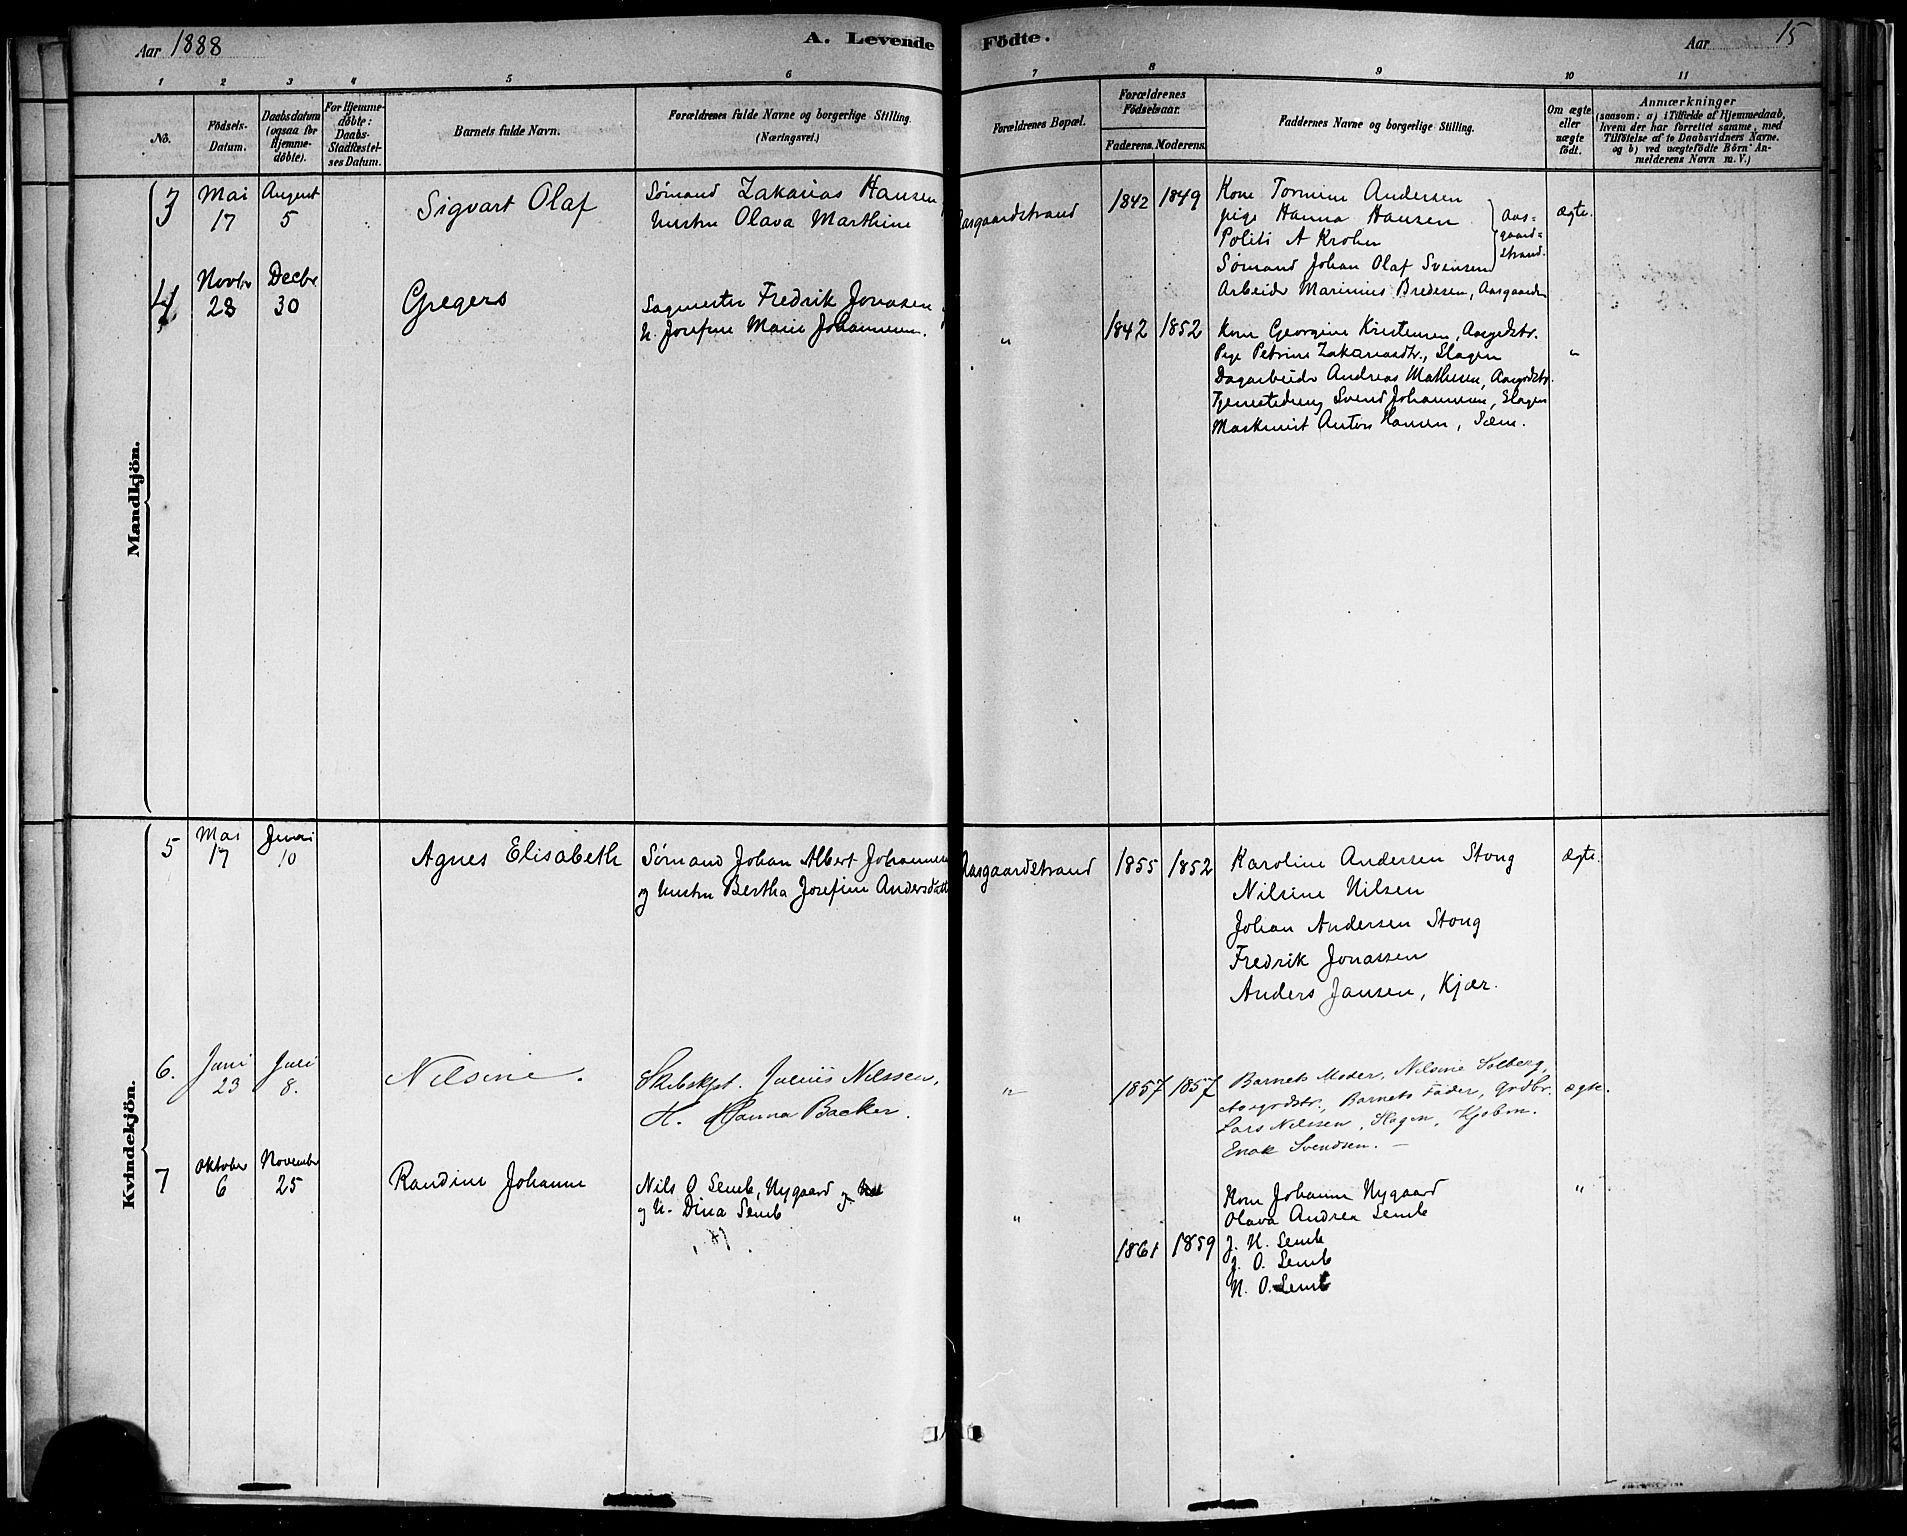 Aar 1888
A. Levende Födte.
Aar
15
1 2 3 4 5 6 7 8 9 10 11
No.
Födsels-Datum.
Daabsdatum (ogsaa for Hjemme-döbte).
For Hjemme-döbte: Daabs-Stadfæstel-ses Datum.
Barnets fulde Navn.
Forældrenes fulde Navne og borgerlige Stilling. (Næringsvei.)
Forældrenes Bopæl.
Forældrenes Födselsaar.
Faderens. Moderens.
Faddernes Navne og borgerlige Stilling.
Om ægte eller uægte födt.
Anmærkninger
(saasom: a) i Tilfælde af Hjemmedaab, hvem der har forrettet samme, med Tilföielse af to Daabsvidners Navne, og b) ved uægtefödte Börn Anmelderens Navn m. V.)
Mandkjön.
3
Mai 17
August 5
Sigvart Olaf
Sømand Zakarias Hansen
Hustru Olava Marthine
Aasgaardstrand
1842 1849
Kone Tomine Andersen
pige Hanna Hansen
Politi A Krohn
Sømand Johan Olaf Svensen
Aas-
gaard-
strand.
Arbeider Marinius Bredesen, Aasgaarden
ægte.
4
Novbr 28
Decbr 30
Gregers
Sagmester Fredrik Jonasen
H. Josefine Marie Johannesen.
"
1842 1852
Kone Georgine Kristensen, Aasgdstr.
Pige Petrine Zakariasdtr., Slagen
Dagarbeider Andreas Mathisen, Aasgdstr.
Tjenestedreng Svend Johannesen, Slagen
Maskinist Anton Hansen, Sem.
"
Kvindekjön.
5
Mai 17
Juni 10
Agnes Elisabeth
Sømand Johan Albert Johannesen
og Hustru Bertha Josefine Andersdatter
Aasgaardstrand
1855 1852
Karoline Andersen Stang
Nilsine Nilsen
Johan Andersen Stang
Fredrik Jonassen
Anders Jansen, Kjær.
ægte.
6.
Juni 23
Juli 8.
Nilsine.
Skibskpt. Julius Nilssen,
H. Hanna Backer.
"
1857 1857
Barnets Moder, Nilsine Solberg,
Aasgrdstr., Barnets Fader, Grdbr.
Lars Nilssen, Slagen, Kjøbm.
Enok Svendsen. –
ægte.
7
Oktober 6
November 25
Randine Johanne
Nils O Semb, Nygaard
og H. Dina Semb
"
1861 1859
Kone Johanne Nygaard
Olava Andrea Semb
J. H. Semb
J. O. Semb
N. O. Semb
"